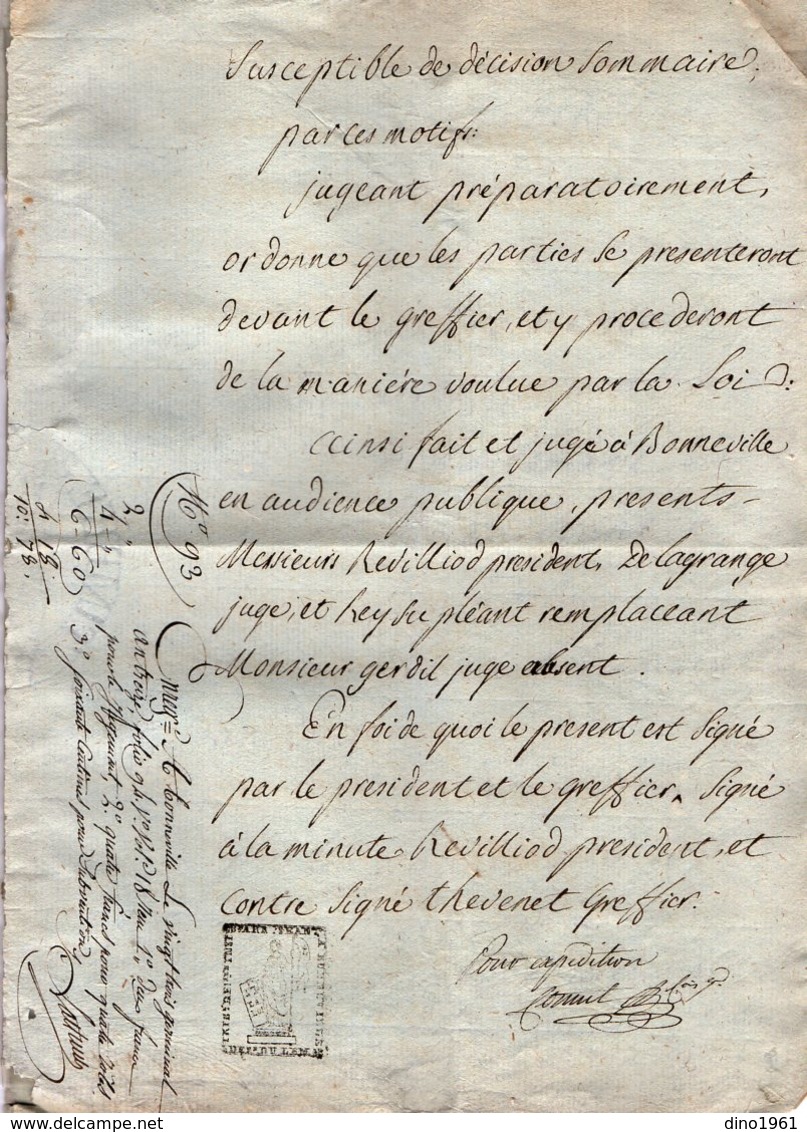 Susceptible de décision Sommaire,
par ces motifs:
jugeant préparatoirement,
ordonne que les parties se presenteront
devant le greffier, et y procederont
de la maniére voulue par la Loi:
ainsi fait et jugé à Bonneville
en audience publique, presents
Messieurs Revilliod president, Delagrange
juge, et Rey supléant remplaceant
Monsieur gerdil juge absent.
En foi de quoi le present est Signé
par le president et le greffier, Signé
à la minute Revilliod president, et
Contre Signé thevenet Greffier.
Pour expédition
N.º 93
2 "
4 - "
6 - 60
4 18.
10: 78.
A bonneville le vingt trois germinal
an treize, folio
pour le Jugement 2º quatre francs pour quatre
3º Soixante Centimes pour Subvention
dino1961